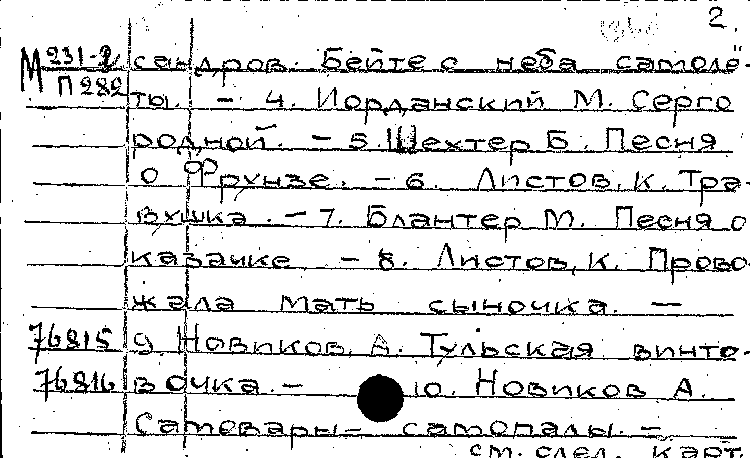 2.
М 231-2 сандров. Бейте с неба самолё-
П 282 ты. - 4. Иорданский М. Серго
родной. - 5. Шехтер Б. Песня
о Фрунзе. - 6. Листов, К. Тра-
вушка. - 7. Блантер М. Песня о
казачке - 8. Листов, К. Прово-
жала мать сыночка. -
76815 9. Новиков, А. Тульская винто-
76816 вочка. - 10. Новиков А.
Самовары - самопалы. -
см. след. карт.